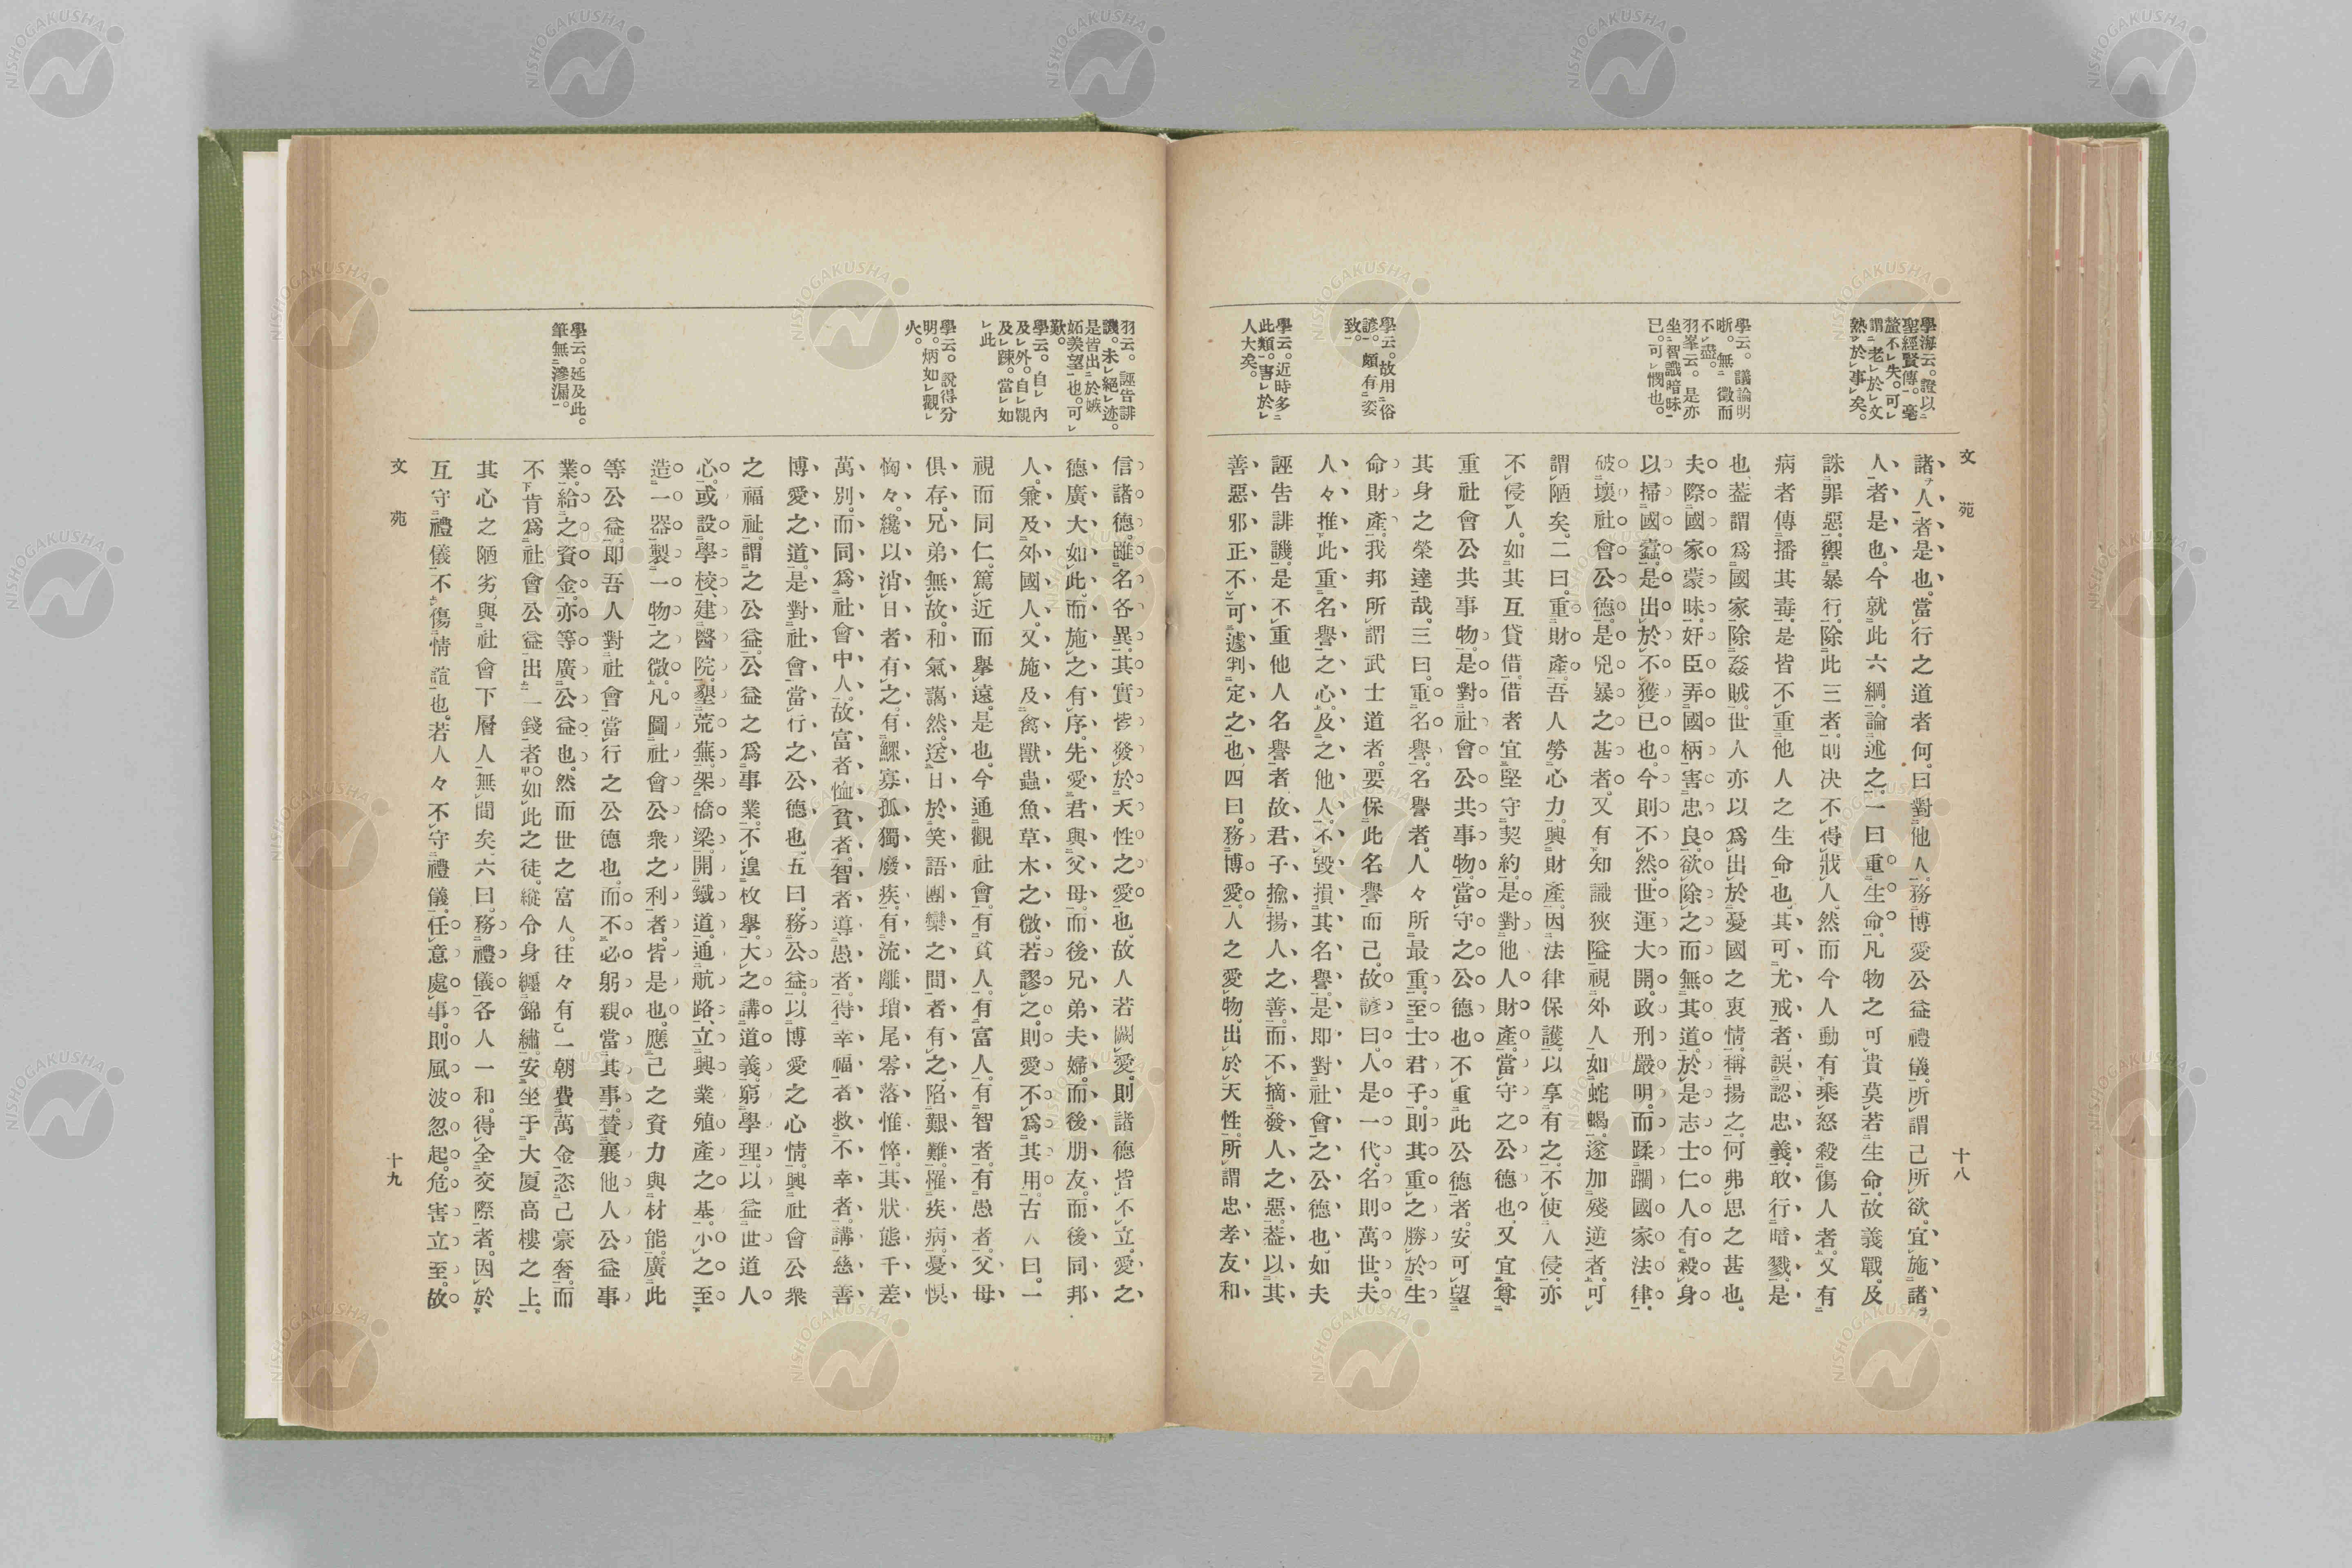 文苑
十八
學海云。證以
聖經賢傳。毫
釐不失。可
謂老於文
熟於事矣。
學云。議論明
晰。無徵而
不盡。
羽峯云。是亦
坐智識暗昧
已。可憫也。
學云。故用俗
諺。頗有姿
致。
學云。近時多
此類。害於
人大矣。
諸人者是也。當行之道者何。曰對他人。務博愛公益禮儀。所謂己所欲。宜施諸
人者是也。今就此六綱。論述之。一曰重生命。凡物之可貴莫若生命。故義戰。及
誅罪惡。禦暴行。除此三者。則決不得戕人。然而今人動有乘怒殺傷人者。又有
病者傳播其毒。是皆不重他人之生命也。其可尤戒者。誤認忠義。敢行暗戮。是
也。葢謂爲國家除姦賊。世人亦以爲出於憂國之衷情。稱揚之。何弗思之甚也。
夫際國家蒙昧。奸臣弄國柄害忠良。欲除之而無其道。於是志士仁人有殺身
以掃國蠹。是出於不獲已也。今則不然。世運大開。政刑嚴明。而蹂躙國家法律。
破壞社會公德。是兇暴之甚者。又有知識狹隘視外人如蛇蝎。遂加殘逆者。可
謂陋矣。二曰。重財產。吾人勞心力。興財產。因法律保護。以享有之。不使人侵。亦
不侵人。如其互貸借。借者宜堅守契約。是對他人財產。當守之公德也。又宜尊
重社會公共事物。是對社會公共事物。當守之公德也。不重此公德者。安可望
其身之榮達哉。三曰。重名譽。名譽者。人々所最重。至士君子。則其重之勝於生
命財產。我邦所謂武士道者。要保此名譽而己。故諺曰。人是一代。名則萬世。夫
人々推此重名譽之心。及之他人。不毀損其名譽。是即對社會之公德也。如夫
誣告誹譏。是不重他人名譽者。故君子揄揚人之善。而不摘發人之惡。葢以其
善惡邪正不可遽判定之也。四曰。務博愛。人之愛物。出於天性。所謂忠孝友和
羽云。誣告誹
譏。未絕迹。
是皆出於嫉
妬羨望也。可
歎。
學云。自內
及外。自親
及踈。當如
此
學云。說得分
明。炳如觀
火。
學云。延及此。
筆無滲漏。
信諸德。雖名各異。其實皆發於天性之愛也。故人若闕愛。則諸德皆不立。愛之
德廣大如此。而施之有序。先愛君與父母。而後兄弟夫婦。而後朋友。而後同邦
人。兼及外國人。又施及禽獸蟲魚草木之微。若謬之。則愛不爲其用。古人曰。一
視而同仁。篤近而擧遠。是也。今通觀社會。有貧人。有富人。有智者。有愚者。父母
俱存。兄弟無故。和氣藹然。送日於笑語團欒之間者有之。陷艱難。罹疾病。憂悞
恟々。纔以消日者有之。有鰥寡孤獨廢疾。有流離瑣尾零落惟悴。其狀態千差
萬別。而同爲社會中人。故富者恤貧者。智者導愚者。得幸福者救不幸者。講慈善
博愛之道。是對社會當行之公德也。五曰。務公益。以博愛之心情。興社會公衆
之福祉。謂之公益。公益之爲事業。不遑枚擧。大之講道義。窮學理。以益世道人
心。或設學校、建醫院。墾荒蕪。架橋梁。開鐵道。通航路、立興業殖產之基。小之至
造一器製一物之微。凡圖社會公衆之利者。皆是也。應己之資力與材能。廣此
等公益。即吾人對社會當行之公德也。而不必躬親當其事。賛襄他人公益事
業。給之資金。亦等廣公益也。然而世之富人。往々有一朝費萬金。恣己豪奢。而
不肯爲社會公益出一錢者。如此之徒。縱令身纒錦繡。安坐于大厦高樓之上。
其心之陋劣。與社會下層人無間矣。六曰。務禮儀。各人一和。得全交際者。因於
互守禮儀不傷情誼也。若人々不守禮儀。任意處事。則風波忽起。危害立至。故
文苑
十九